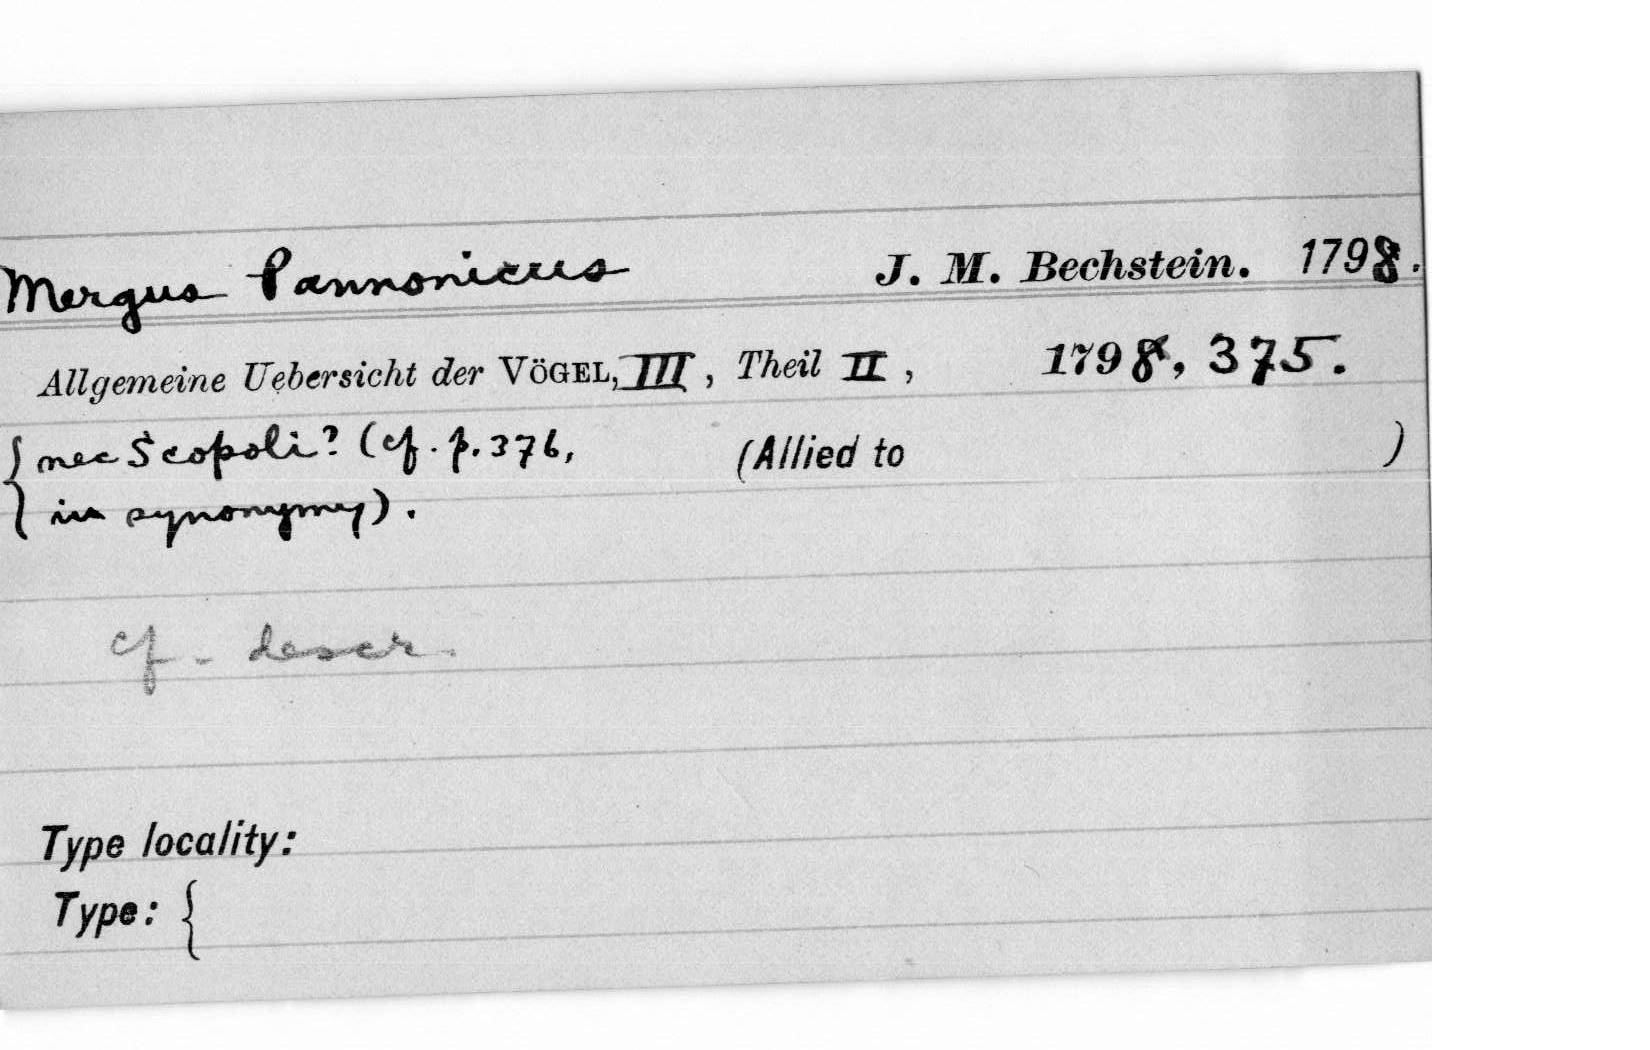 Mergus Pannonicus J. M. Bechstein. 1798.
Allgemeine Uebersicht der VÖGEL, III, Theil II, 1798, 375.
{ nec Scopoli? (cf. p. 376, (Allied to )
in synonymy).
cf. descr.
Type locality:
Type: {